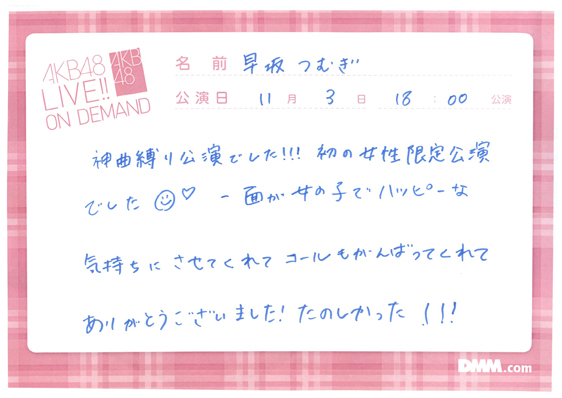 AKB48
LIVE!!
ON DEMAND
AKB
48
名前 早坂 つむぎ
公演日 11月 3日 18:00 公演
神曲縛り公演でした!!! 初の女性限定公演
でした☺♡ 一面が女の子でハッピーな
気持ちにさせてくれて コールもがんばってくれて
ありがとうございました! たのしかった!!!
DMM.com